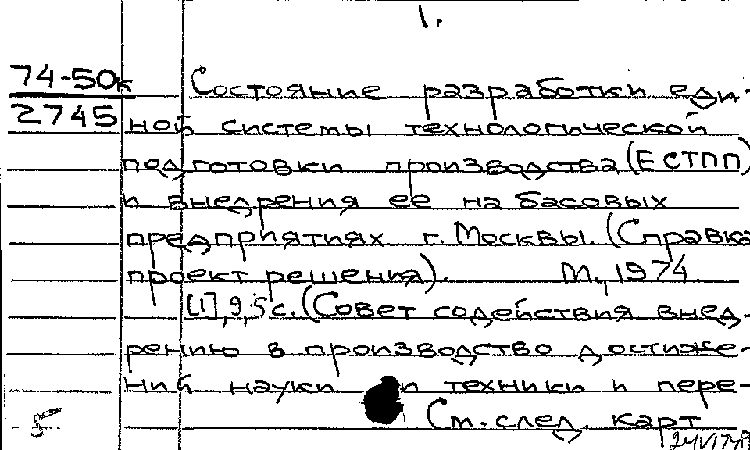 1.
74-50к Состояние разработки еди-
2745 ной системы технологической
подготовки производства (ЕСТПП)
и внедрения ее на басовых
предприятиях г. Москвы. (Справка
проект решения). М., 1974
[1], 9, 5 с. (Совет содействия внед-
рению в производство достиже-
ний науки и техники и пере-
См. след. карт